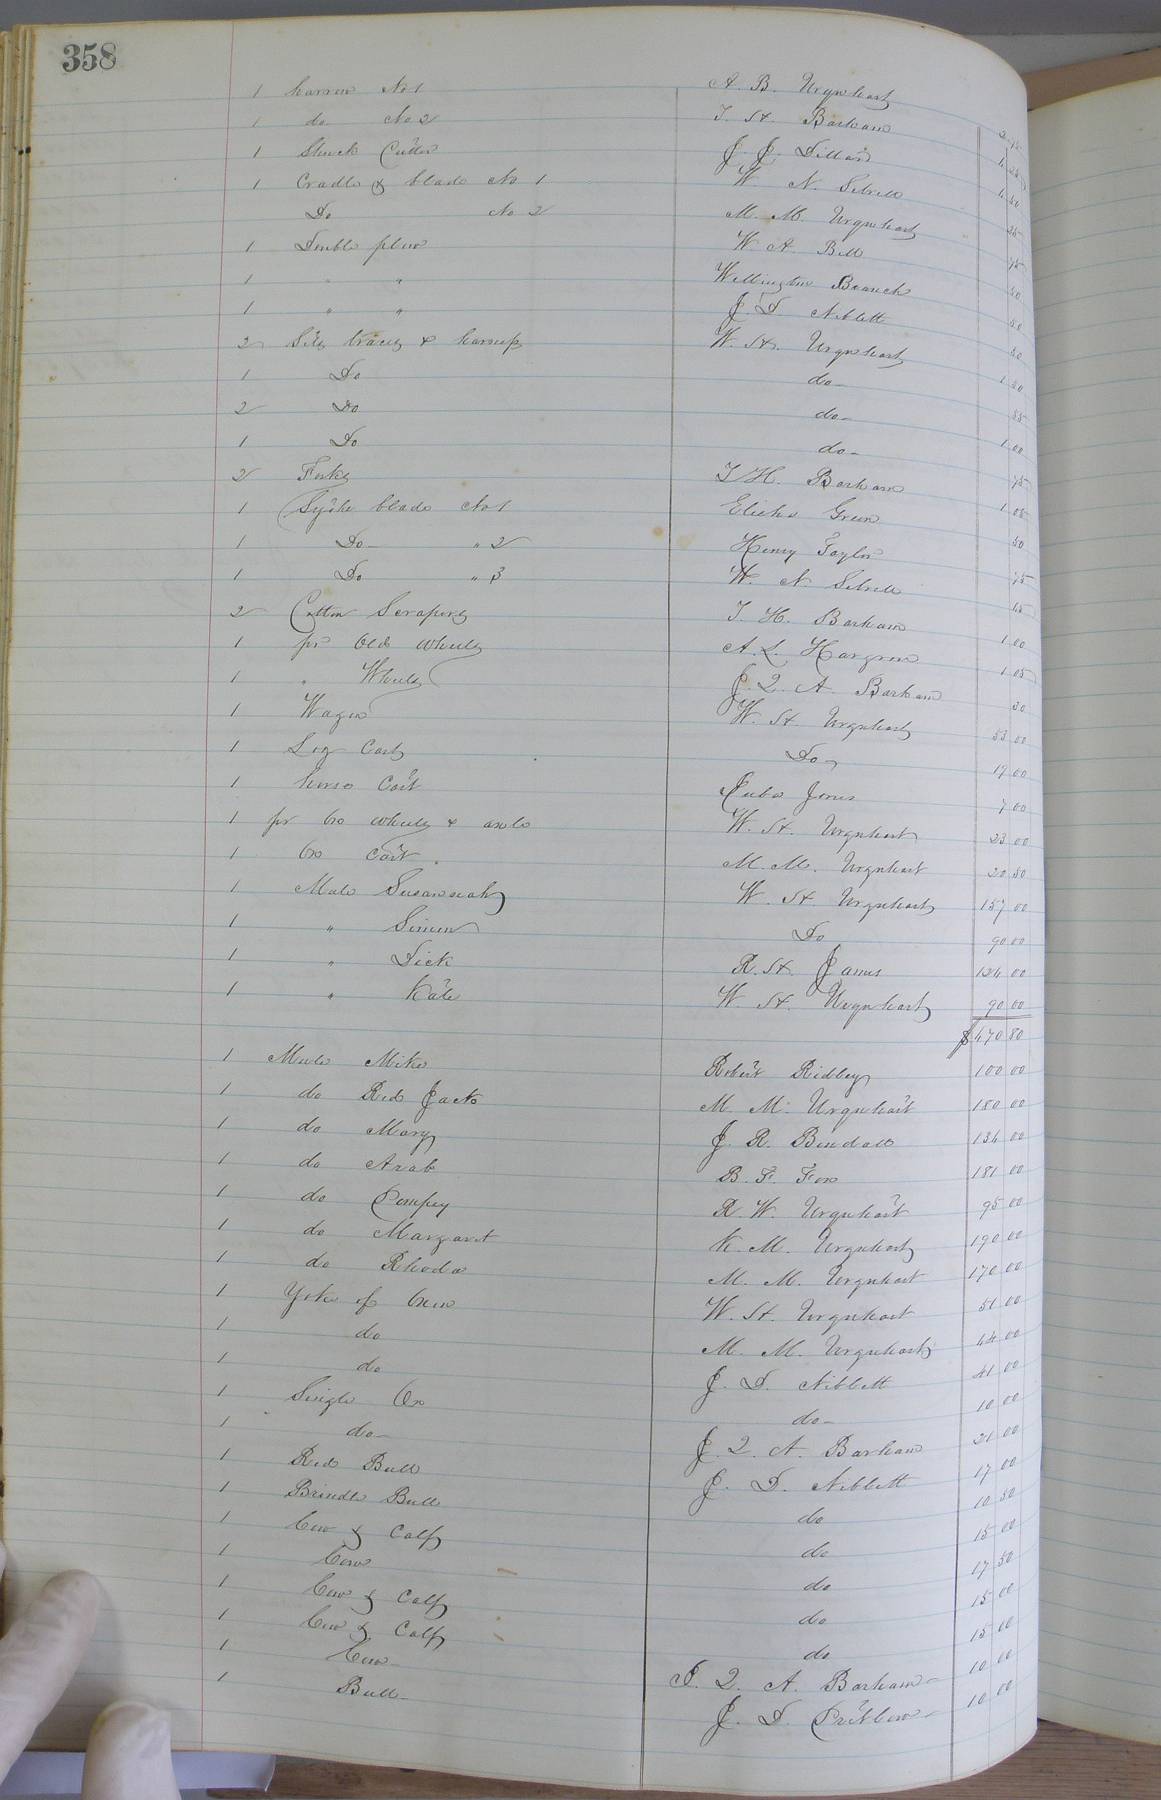 358
1 harrow No 1 A. B. Urquhart
1 do No 2 T. H. Barham
1 Shuck Cutter J. J. Dillard
1 Cradle & blade No 1 W. N. Sebrell
Do No 2 M. M. Urquhart 25
1 Double plow W. A. Bell 75
1 " " Wellington Branch 50
1 " " J. D. Niblett 50
2 Sets traces & harness W. H. Urquhart 50
1 Do do 1 50
2 Do do 55
1 Do do 1 00
2 Forks T. H. Barham 75
1 Sythe blade No 1 Elisha Green 1 05
1 Do " 2 Henry Taylor 50
1 Do " 3 W. N. Sebrell 75
2 Cotton Scrapers T. H. Barham 15
1 pr Old Wheels A. L. Hargrove 1 00
1 " Wheels J. Q. A. Barham 1 05
1 Wagon W. H. Urquhart 30
1 Log Cart Do 53 00
1 horse Cart Juba Jones 17 00
1 pr Ox wheels & axle W. H. Urquhart 7 00
1 Ox Cart M. M. Urquhart 23 00
1 Mule Susannah W. H. Urquhart 20 50
157 00
1 " Simon Do 90 00
1 " Dick R. H. James 134 00
1 " Kate W. H. Urquhart 90 00
$ 470 80
1 Mule Mike Robert Ridley 100 00
1 do Red Jack M. M. Urquhart 180 00
1 do Mary J. R. Bendall 134 00
1 do Arab B. F. Fox 181 00
1 do Pompey R. W. Urquhart 95 00
1 do Margaret K. M. Urquhart 190 00
1 do Rhoda M. M. Urquhart 170 00
1 Yoke of Oxen W. H. Urquhart 51 00
1 do M. M. Urquhart 44 00
1 do J. D. Niblett 41 00
1 Single Ox do 10 00
1 do J. Q. A. Barham 21 00
1 Red Bull J. D. Niblett 17 00
1 Brindle Bull do 10 50
1 Cow & Calf do 15 00
1 Cow do 17 50
1 Cow & Calf do 15 00
1 Cow & Calf do 15 00
1 Cow J. Q. A. Barham 10 00
1 Bull J. D. 10 00